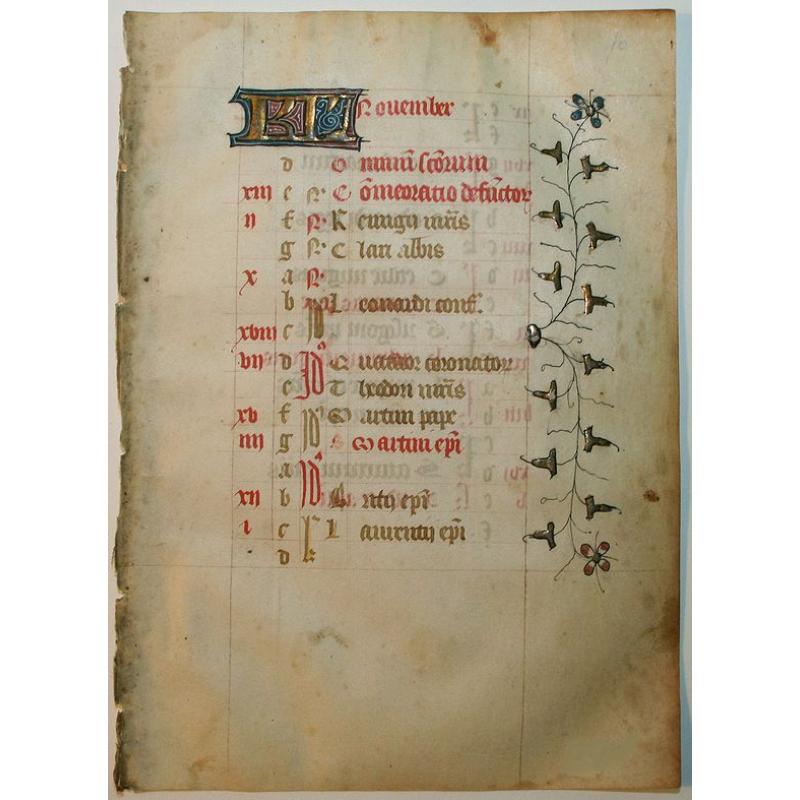 KL Nouember
d Omniū sc̄torum
xiii e N C ōmeōratio defūctoꝝ
ii f N K euuigii mr̄is
g N C lari albis
x a N
b N L eonardi conf.
xviii c
vii d Id' Q uattuor coronatoꝝ
e T heodori mr̄is
xv f Id M artini pape
iiii g S Martini ep̄i
a Id'
xii b B ritii ep̄i
i c L aurentii ep̄i
d k